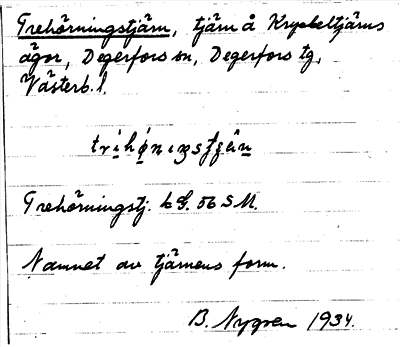 Trehörningstjärn, tjärn å Kryckeltjärns
ägor, Degerfors sn, Degerfors tg,
Västerb. l.
Trehörningstj. kG. 56 S M.
Namnet av tjärnens form.
B. Nygren 1934.